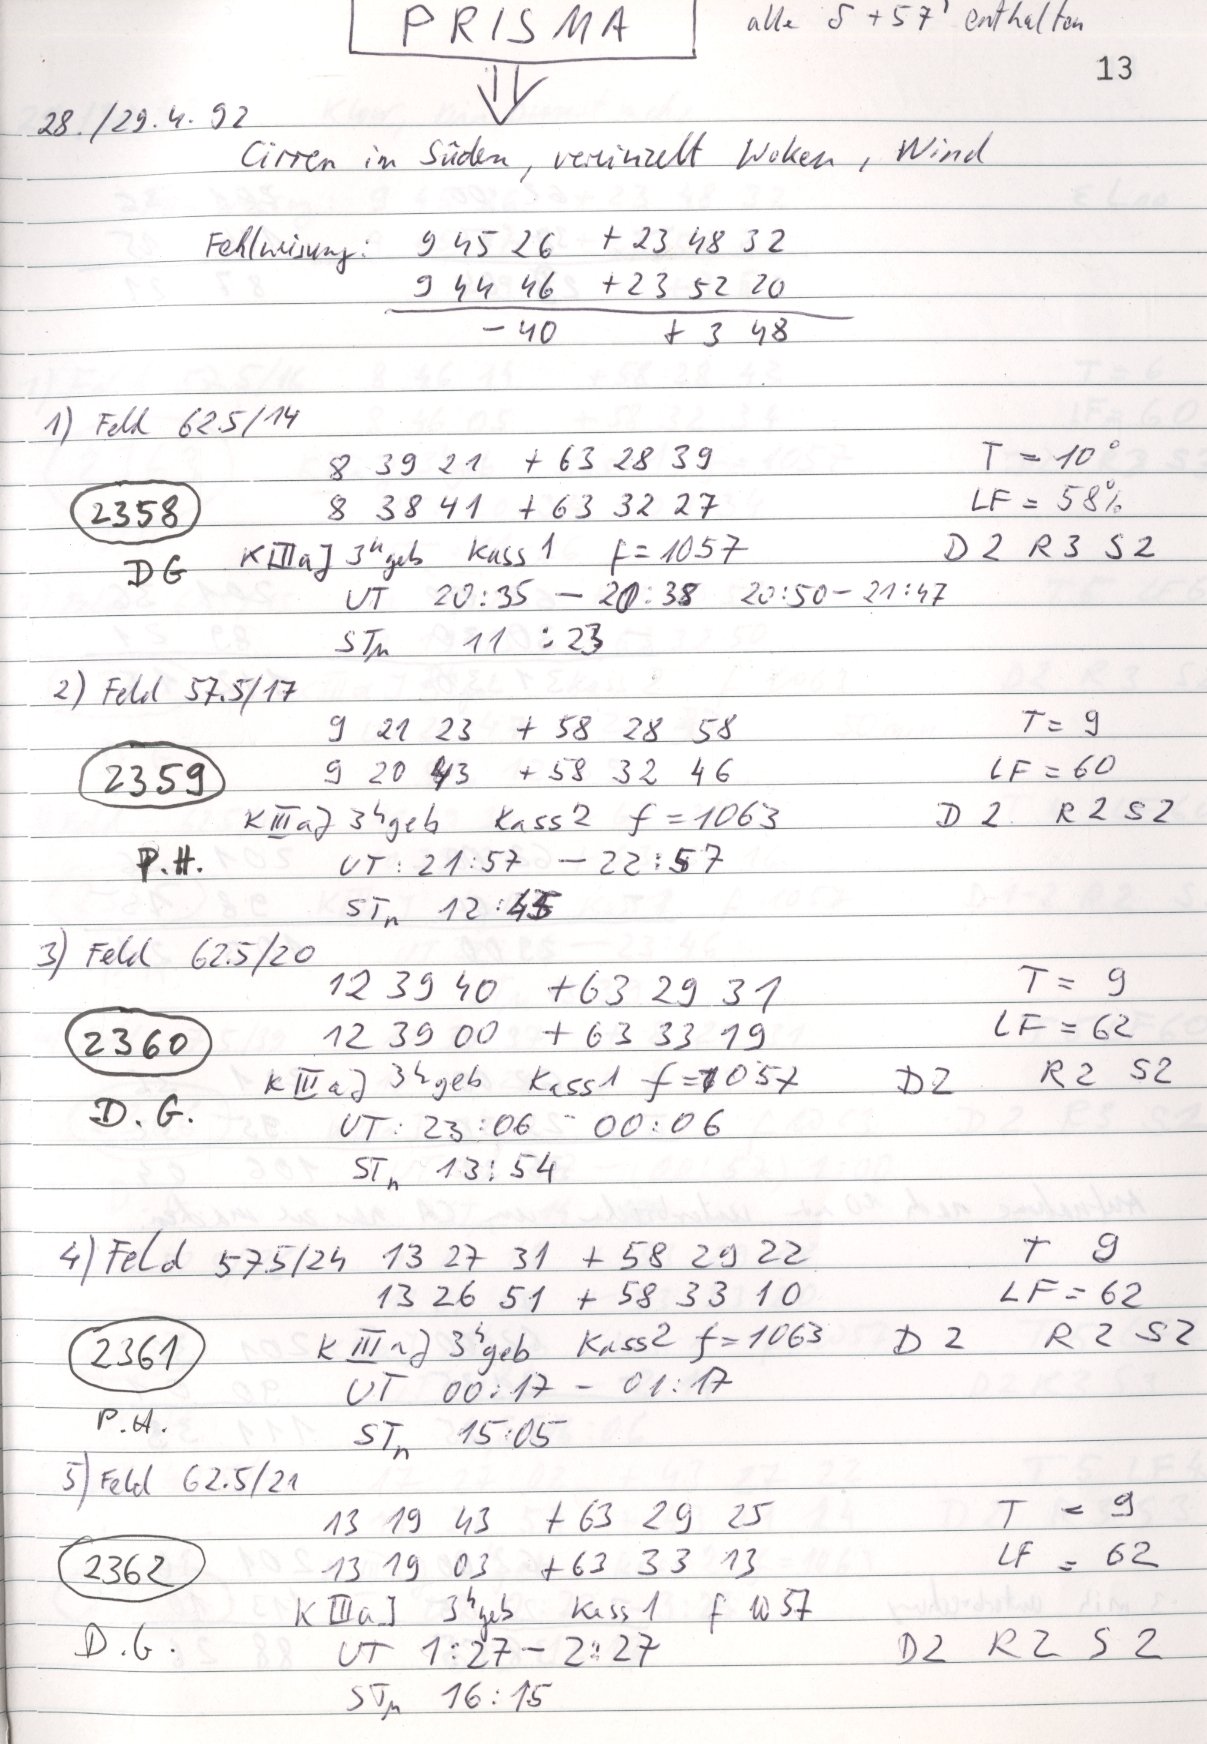 PRISMA
alle δ +57' enthalten
13
28./29.4.92
Cirren im Süden, vereinzelt Woken, Wind
Fehlweisung: 9 45 26 +23 48 32
9 44 46 +23 52 20
-40 + 3 48
1) Feld 62.5/14
8 39 21 +63 28 39 T = 10°
2358 8 38 41 +63 32 27 LF = 58%
DG K IIIaJ 3h geb Kass 1 f=1057 D2 R3 S2
UT 20:35 - 20:38 20:50-21:47
STn 11:23
2) Feld 57.5/17
9 21 23 +58 28 58 T = 9
2359 9 20 43 +58 32 46 LF = 60
K IIIaJ 3h geb Kass 2 f=1063 D2 R2 S2
P.H. UT: 21:57 - 22:57
STn 12:45
3) Feld 62.5/20
12 39 40 +63 29 31 T = 9
2360 12 39 00 +63 33 19 LF = 62
K IIIaJ 3h geb Kass 1 f=1057 D2 R2 S2
D.G. UT: 23:06 - 00:06
STn 13:54
4) Feld 57.5/24 13 27 31 +58 29 22 T 9
13 26 51 +58 33 10 LF = 62
2361 K IIIaJ 3h geb Kass 2 f=1063 D2 R2 S2
UT 00:17 - 01:17
P.H. STn 15:05
5) Feld 62.5/21
13 19 43 +63 29 25 T = 9
2362 13 19 03 +63 33 13 LF = 62
K IIIaJ 3h geb Kass 1 f 1057
D.G. UT 1:27 - 2:27 D2 R2 S2
STn 16:15